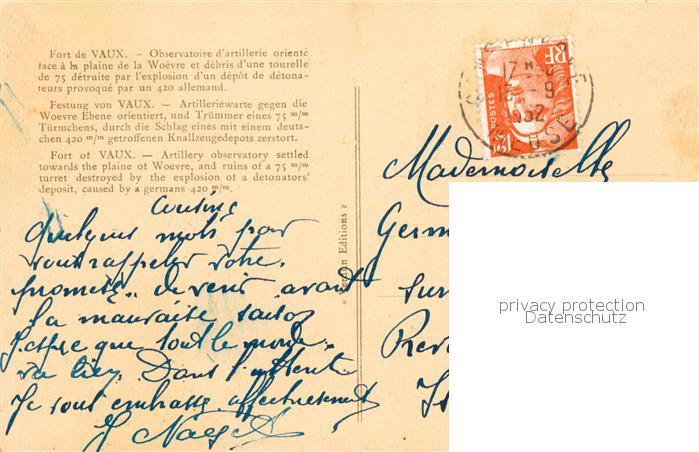 Fort de VAUX. — Observatoire d'artillerie orienté
face à la plaine de la Woëvre et débris d'une tourelle
de 75 détruite par l'explosion d'un dépôt de détona-
teurs provoqué par un 420 allemand.
Festung von VAUX. — Artilleriewarte gegen die
Woevre Ebene orientiert, und Trümmer eines 75 m/m
Türmchens, durch die Schlag eines mit einem deuts-
chen 420 m/m getroffenen Knallzeugedepots zerstort.
Fort of VAUX. — Artillery observatory settled
towards the plaine of Woevre, and ruins of a 75 m/m
turret destroyed by the explosion of a detonators'
deposit, caused by a germans 420 m/m.
Cousine
Quelques mots pour
vous rappeler votre
promesse de venir avant
la mauvaise saison
J'espère que tout le monde
va bien. Dans l'attente
Je vous embrasse affectueusement
Editions
RF
POSTES
MEUSE
Mademoiselle
Germ
sur
privacy protection
Datenschutz